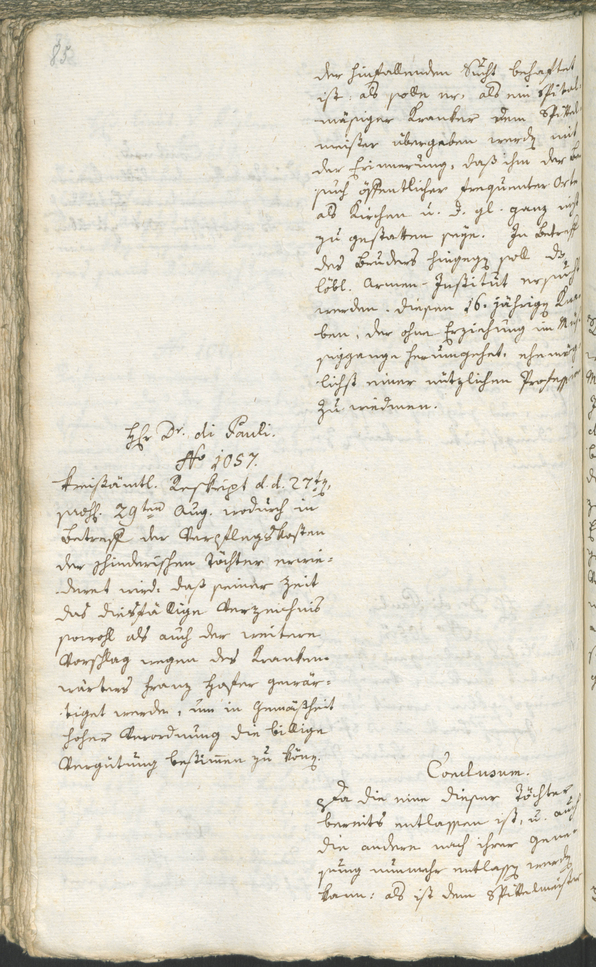 85
der hinfallenden Sucht behaftet
ist, als solle er, als ein Spital-
mäsiger Kranker dem Spittel-
meister übergeben werden mit
der Erinnerung, daß ihm der Be-
such öffentlicher frequenter Orte
als Kirchen u. d. gl. ganz nicht
zu gestatten seye. In Betreff
des Bruders hingegen soll das
löbl. Armen-Institut ersucht
werden, diesen 16. jährigen Kna-
ben, der ohne Erziehung im Müs-
siggange herumgehet, ehemög-
lichst einer nützlichen Profession
zu wiedmen.
Hr. Dr. di Pauli.
No 1057.
Kreisämtl. Reskript d. d. 27ten,
praes. 29ten Aug. wodurch in
Betreff der Verpflegskosten
der schinderischen Töchter erwie-
deret wird, daß seiner Zeit
das diesfällige Verzeichnis
sowohl als auch der weitere
Vorschlag wegen des Kranken-
wärters Franz Hofer gewär-
tiget werde, um in Gemäßheit
hoher Verordnung die billige
Vergütung bestimmen zu können.
Conclusum.
Da die eine dieser Töchter
bereits entlassen ist, u. auch
die andere nach ihrer Gene-
sung nunmehr entlassen werden
kann: als ist dem Spittelmeister